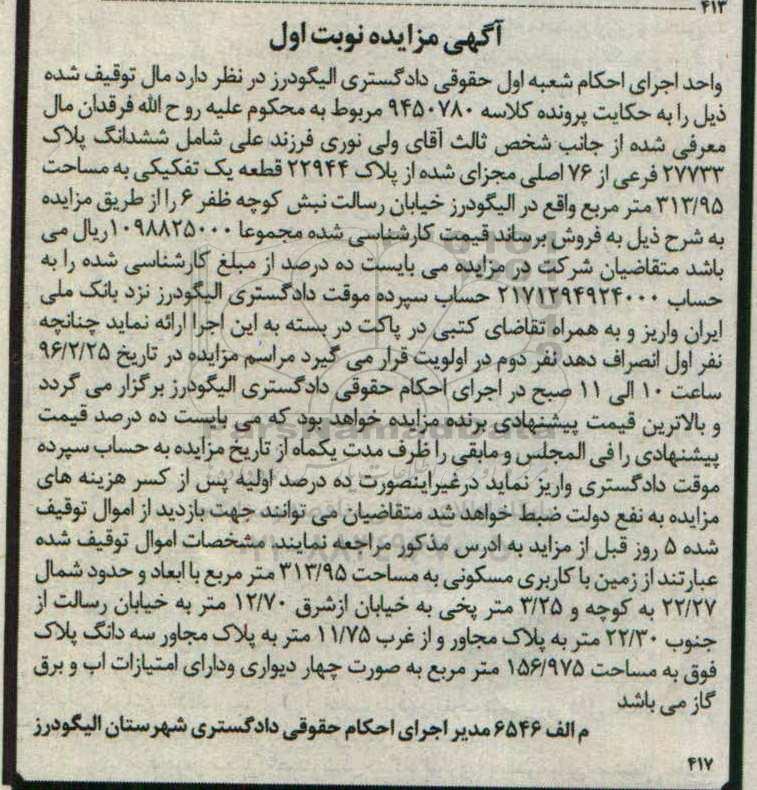 ۴۱۳
آگهی مزایده نوبت اول
واحد اجرای احکام شعبه اول حقوقی دادگستری الیگودرز در نظر دارد مال توقیف شده
ذیل را به حکایت پرونده کلاسه ۹۴۵۰۷۸۰ مربوط به محکوم علیه روح الله فرقدان مال
معرفی شده از جانب شخص ثالث آقای ولی نوری فرزند علی شامل ششدانگ پلاک
۲۷۷۳۳ فرعی از ۷۶ اصلی مجزای شده از پلاک ۲۲۹۴۴ قطعه یک تفکیکی به مساحت
۳۱۳/۹۵ متر مربع واقع در الیگودرز خیابان رسالت نبش کوچه ظفر ۶ را از طریق مزایده
به شرح ذیل به فروش برساند قیمت کارشناسی شده مجموعا ۱۰۹۸۸۲۵۰۰۰ ریال می
باشد متقاضیان شرکت در مزایده می بایست ده درصد از مبلغ کارشناسی شده را به
حساب ۲۱۷۱۲۹۴۹۲۴۰۰۰ حساب سپرده موقت دادگستری الیگودرز نزد بانک ملی
ایران واریز و به همراه تقاضای کتبی در پاکت در بسته به این اجرا ارائه نماید چنانچه
نفر اول انصراف دهد نفر دوم در اولویت قرار می گیرد مراسم مزایده در تاریخ ۹۶/۲/۲۵
ساعت ۱۰ الی ۱۱ صبح در اجرای احکام حقوقی دادگستری الیگودرز برگزار می گردد
و بالاترین قیمت پیشنهادی برنده مزایده خواهد بود که می بایست ده درصد قیمت
پیشنهادی را فی المجلس و مابقی را ظرف مدت یکماه از تاریخ مزایده به حساب سپرده
موقت دادگستری واریز نماید درغیراینصورت ده درصد اولیه پس از کسر هزینه های
مزایده به نفع دولت ضبط خواهد شد متقاضیان می توانند جهت بازدید از اموال توقیف
شده ۵ روز قبل از مزاید به ادرس مذکور مراجعه نمایند مشخصات اموال توقیف شده
عبارتند از زمین با کاربری مسکونی به مساحت ۳۱۳/۹۵ متر مربع با ابعاد و حدود شمال
۲۲/۲۷ به کوچه و ۳/۲۵ متر پخی به خیابان ازشرق ۱۲/۷۰ متر به خیابان رسالت از
جنوب ۲۲/۳۰ متر به پلاک مجاور و از غرب ۱۱/۷۵ متر به پلاک مجاور سه دانگ پلاک
فوق به مساحت ۱۵۶/۹۷۵ متر مربع به صورت چهار دیواری ودارای امتیازات اب و برق
گاز می باشد
م الف ۶۵۴۶ مدیر اجرای احکام حقوقی دادگستری شهرستان الیگودرز
۴۱۷